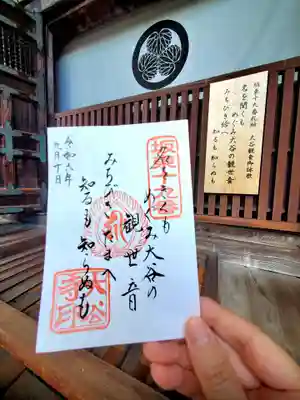 坂東十九番札所　大谷観音御詠歌
名を聞くも
めぐみ大谷の観世音
みちびき給へ
知るも知らぬも
坂東十九番
名をきくも
めぐみ大谷の
観世音
みちびきたまへ
知るも知らぬも
大谷寺印
令和六年
九月十日